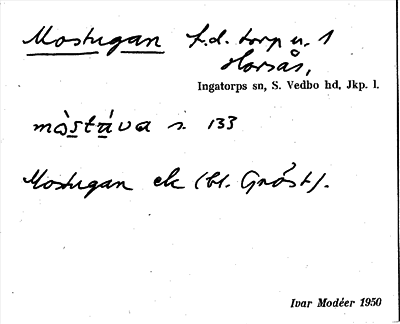 Mostugan f.d. torp u. 1
Horsås,
Ingatorps sn, S. Vedbo hd, Jkp. l.
mòstáva s. 133
Mostugan ek (bl. Gröst).
Ivar Modéer 1950